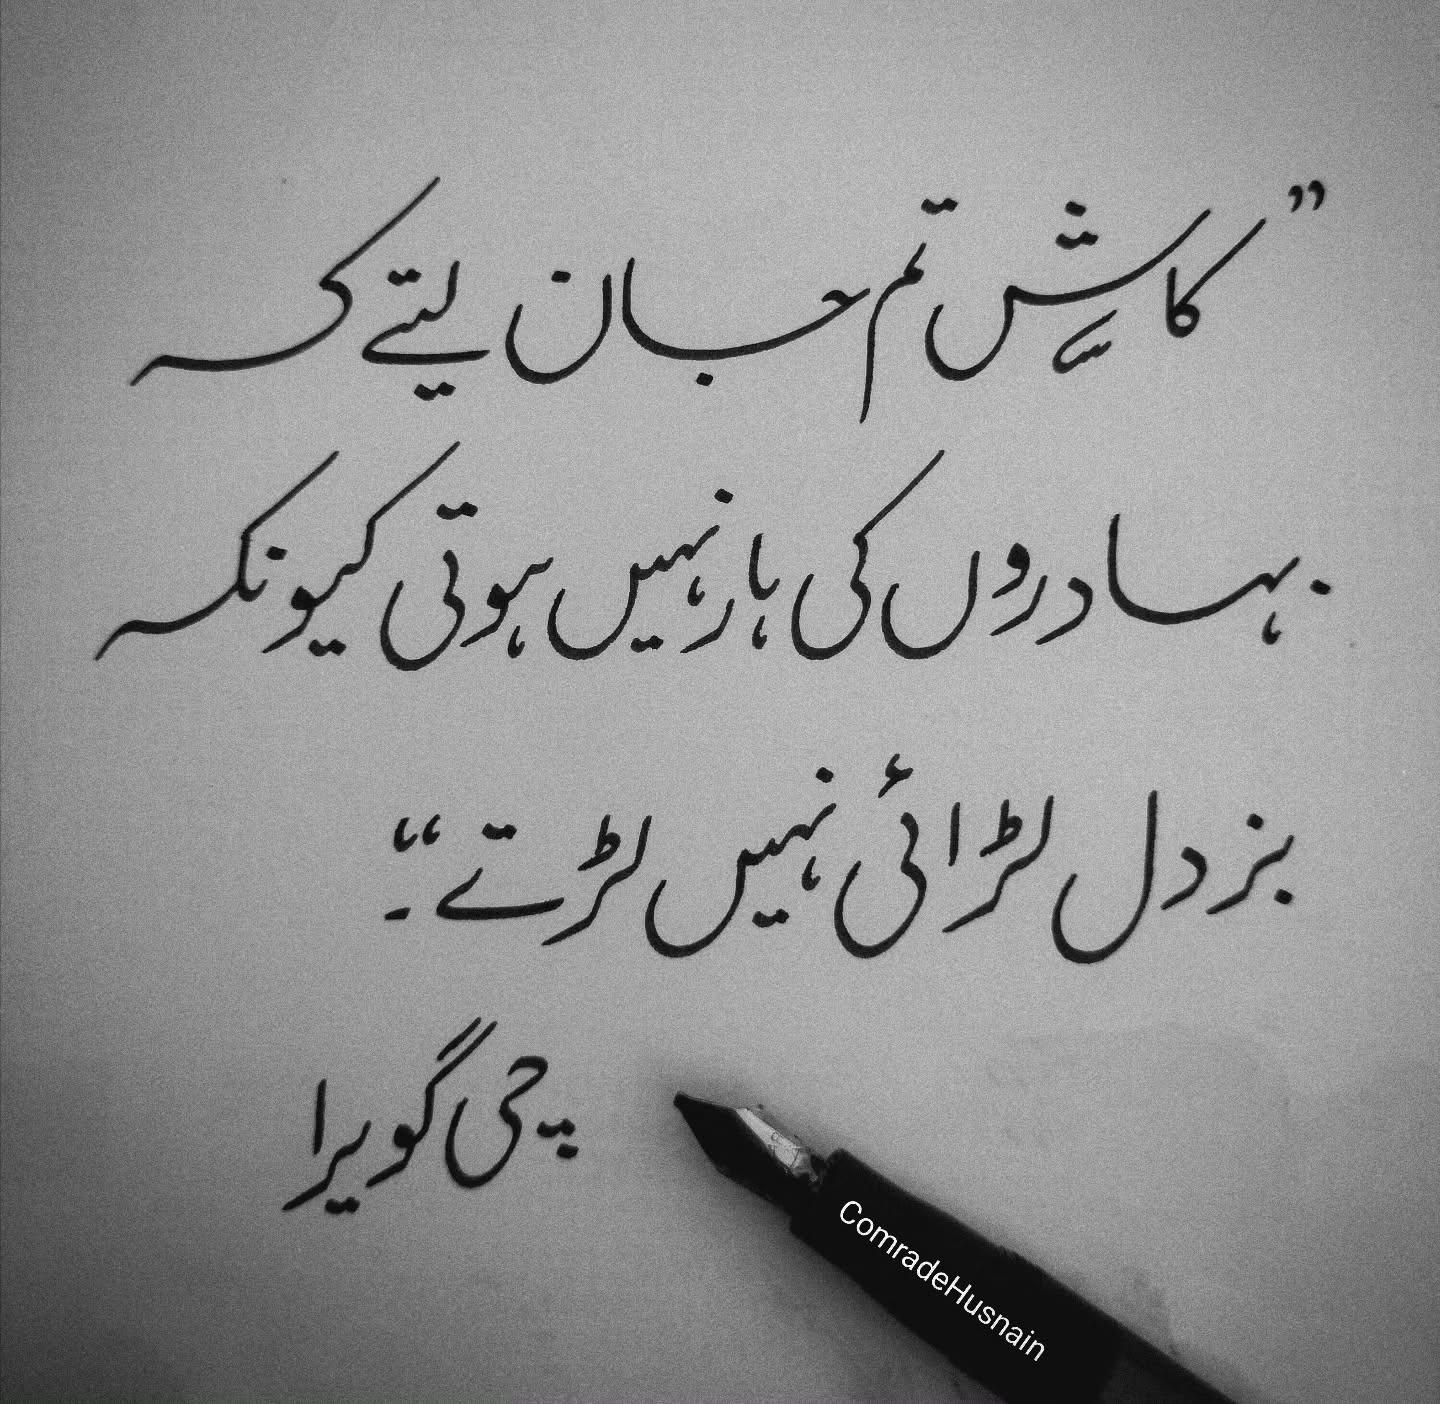 ”کاش تم جان لیتے کہ
بہادروں کی ہار نہیں ہوتی کیونکہ
بزدل لڑائی نہیں لڑتے“۔
چی گویرا
ComradeHusnain